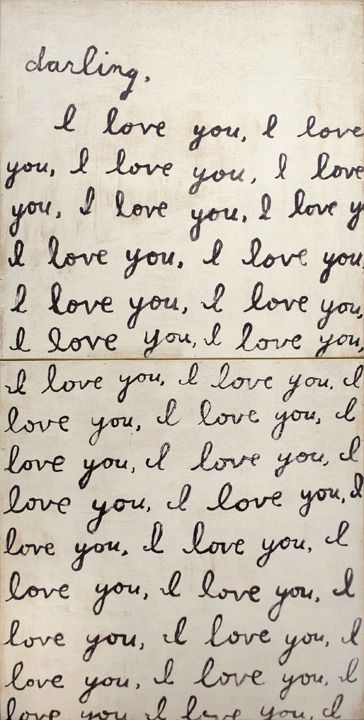 darling,
I love you, I love
you, I love you, I love
you, I love you, I love y
I love you, I love you
I love you, I love you,
I love you, I love you,
I love you, I love you, I
love you, I love you, I
love you, I love you, I
love you, I love you, I
love you, I love you, I
love you, I love you, I
love you, I love you, I
love you, I love you, I
love you I love you, I